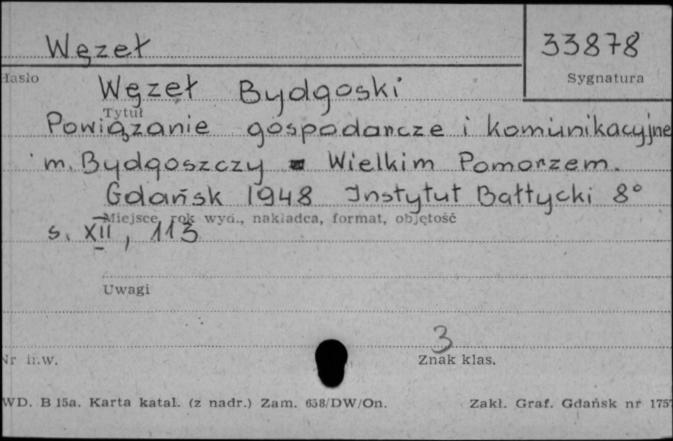 Węzeł
33878
Hasło
Sygnatura
Węzeł Bydgoski
Tytuł
Powiązanie gospodarcze i komunikacyjne
m. Bydgoszczy z Wielkim Pomorzem.
Gdańsk 1948 Instytut Bałtycki 8°
Miejsce, rok wyd., nakładca, format, objętość
s. XII, 113
Uwagi
3
Nr inw.
Znak klas.
WD. B 15a. Karta katal. (z nadr.) Zam. 658/DW/On.
Zakł. Graf. Gdańsk nr 1757